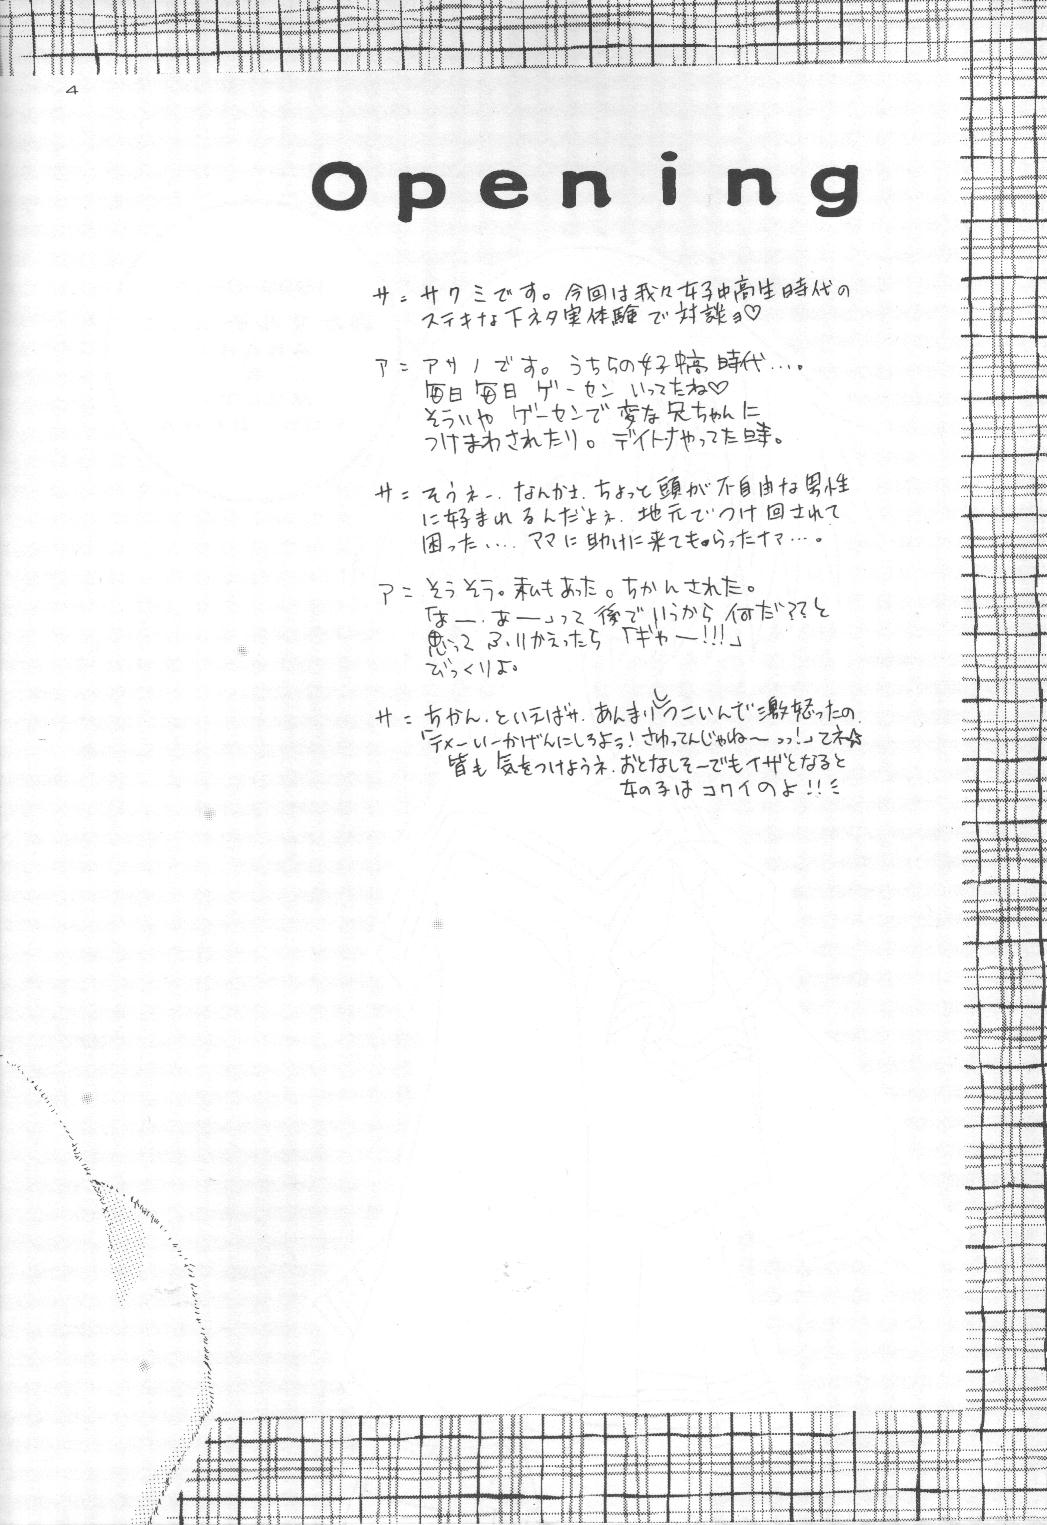 4
Opening
サ＝サクミです。今回は我々女子中高生時代の
ステキな下ネタ実体験で対談ョ♡
ア＝アサノです。うちらの女子中高時代…。
毎日毎日ゲーセンいってたね♡
そういやゲーセンで変な兄ちゃんに
つけまわされたり。デイトナやってた時。
サ＝そうネー、なんかさ、ちょっと頭が不自由な男性
に好まれるんだよネ、地元でつけ回されて
困った…、ママに助けに来てもらったナァ…。
ア＝そうそう。私もあった。ちかんされた。
「はー、あー」って後でいうから何だ??と
思ってふりかえったら「ギャー!!!」
びっくりよ。
サ＝ちかん、といえばサ、あんまりしつこいんで激怒ったの、
「テメーいーかげんにしろよっ!さわってんじゃねーっっ!」てネ☆
皆も気をつけようネ、おとなしそーでもイザとなると
女の子はコワイのよ!!